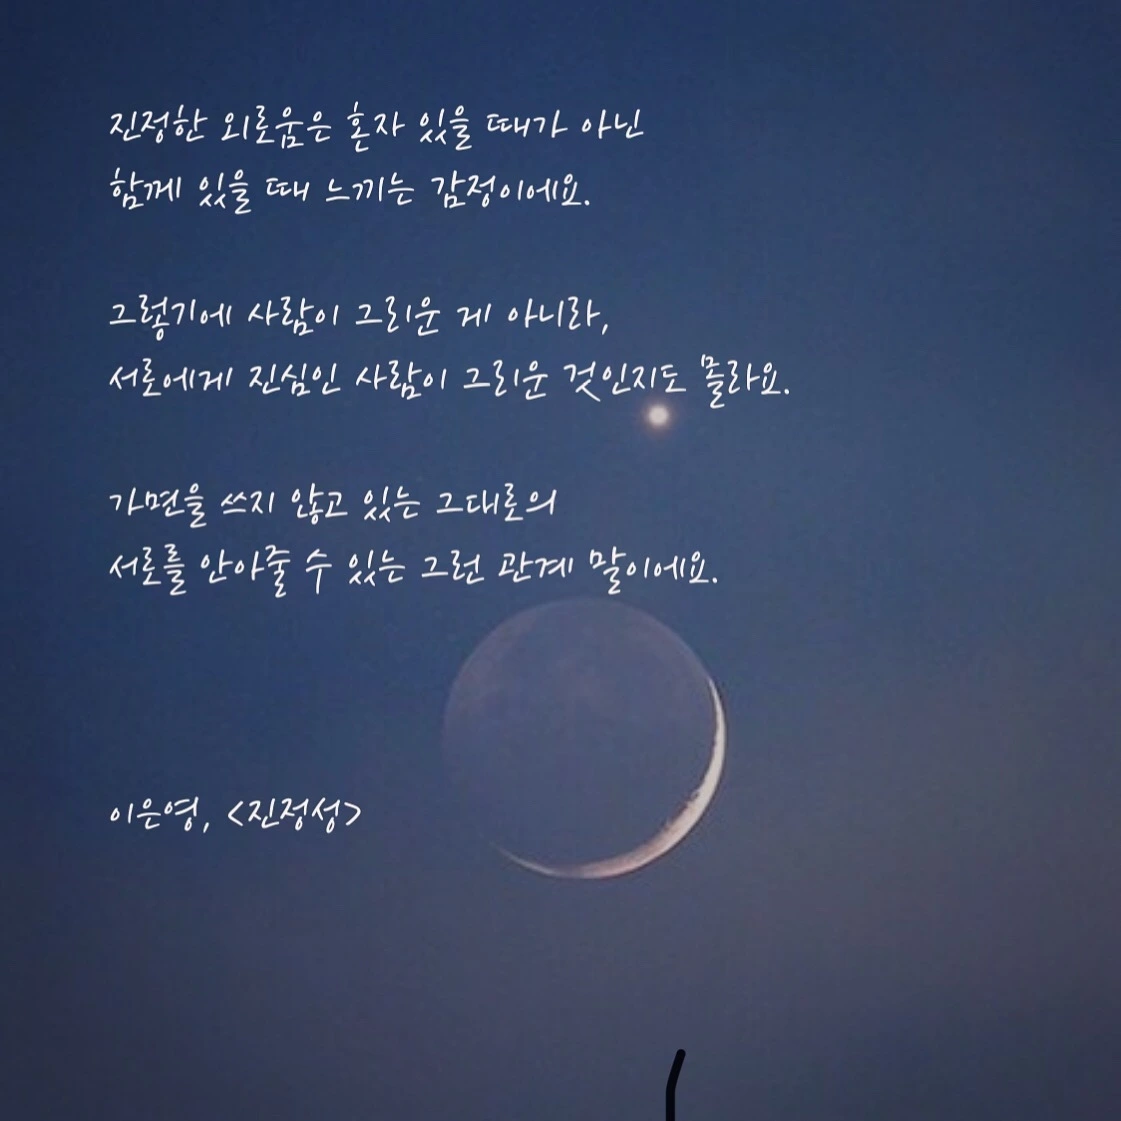 진정한 외로움은 혼자 있을 때가 아닌
함께 있을 때 느끼는 감정이에요.
그렇기에 사람이 그리운 게 아니라,
서로에게 진심인 사람이 그리운 것인지도 몰라요.
가면을 쓰지 않고 있는 그대로의
서로를 안아줄 수 있는 그런 관계 말이에요.
이은영, <진정성>